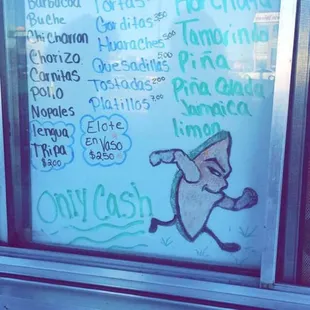 Barbacoa
Buche
Chicharron
Chorizo
Carnitas
Pollo
Nopales
lengua
Tripa
$2.00
Tortas
Gorditas 350
Huaraches 500
Quesadillas 500
Tostadas 200
Platillos 700
Elote
en
Vaso
$2.50
Horchata
Tamarindo
Piña
Piña Colada
Jamaica
limon
Only Cash